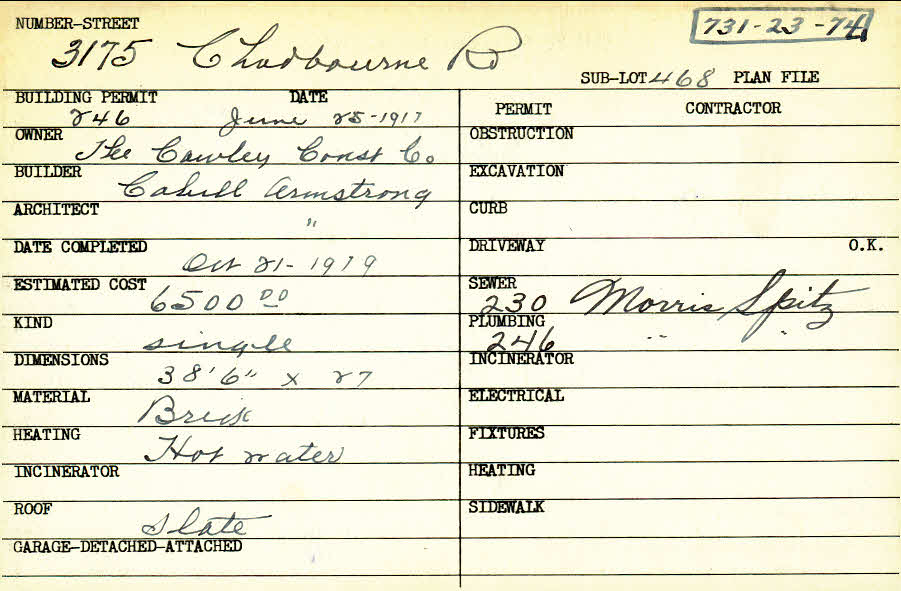 NUMBER-STREET
731-23-74
3175 Chadbourne Rd
SUB-LOT 468 PLAN FILE
BUILDING PERMIT DATE
246 June 25-1917
OWNER
The Cawley Const Co
BUILDER
Cahill Armstrong
ARCHITECT
"
DATE COMPLETED
Oct 21-1919
ESTIMATED COST
6500 00
KIND
single
DIMENSIONS
38'6" x 27
MATERIAL
Brick
HEATING
Hot water
INCINERATOR
ROOF
Slate
GARAGE-DETACHED-ATTACHED
PERMIT CONTRACTOR
OBSTRUCTION
EXCAVATION
CURB
DRIVEWAY O.K.
SEWER
230 Morris Spitz
PLUMBING
246 " "
INCINERATOR
ELECTRICAL
FIXTURES
HEATING
SIDEWALK